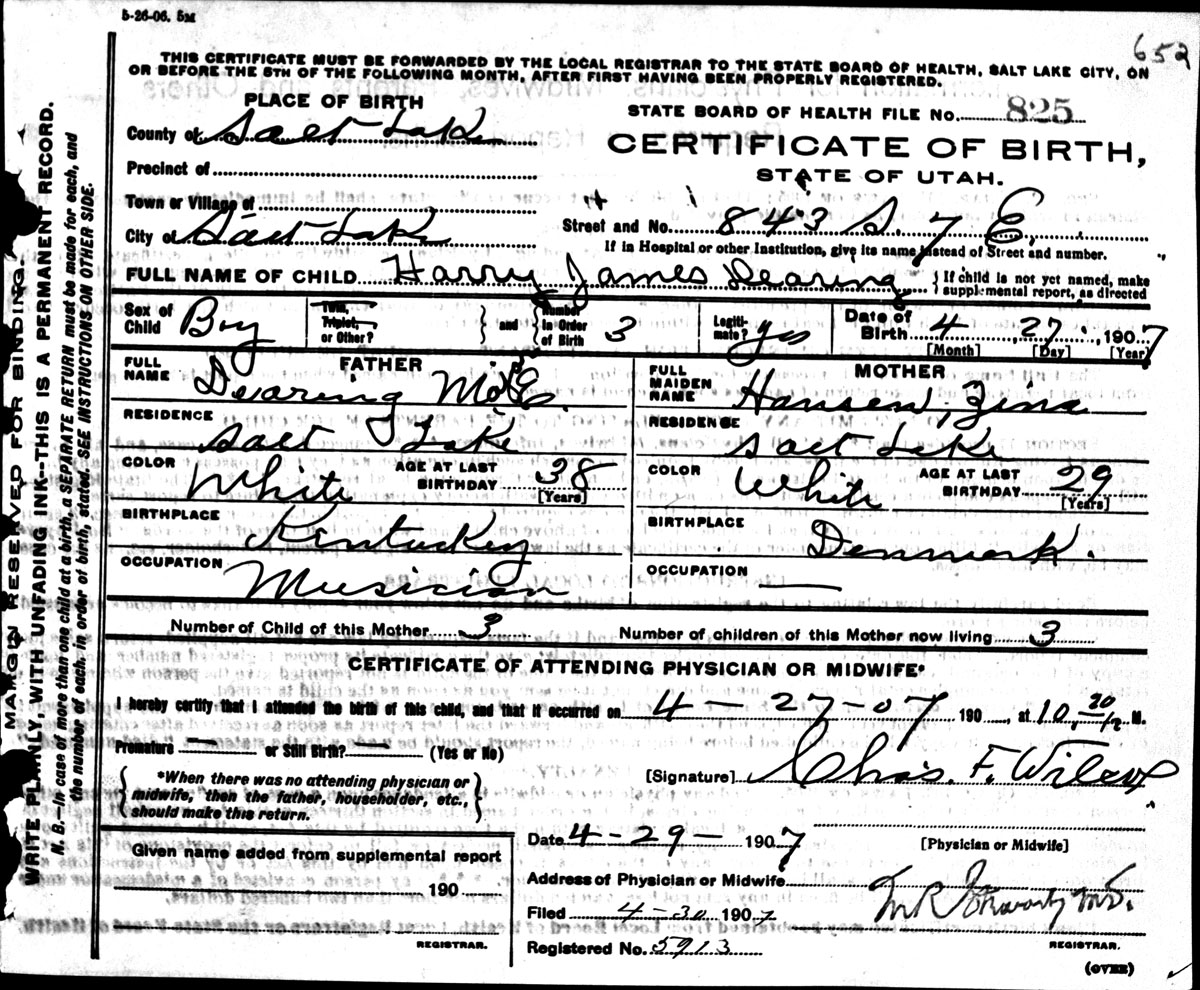 5-26-06. 5M
652
THIS CERTIFICATE MUST BE FORWARDED BY THE LOCAL REGISTRAR TO THE STATE BOARD OF HEALTH, SALT LAKE CITY, ON
OR BEFORE THE 5TH OF THE FOLLOWING MONTH, AFTER FIRST HAVING BEEN PROPERLY REGISTERED.
PLACE OF BIRTH
STATE BOARD OF HEALTH FILE No. 825
County of Salt Lake
CERTIFICATE OF BIRTH,
Precinct of
STATE OF UTAH.
Town or Village of
Street and No. 843 S. 7 E.
City of Salt Lake
If in Hospital or other Institution, give its name instead of Street and number.
FULL NAME OF CHILD Harry James Dearing
{ If child is not yet named, make
supplemental report, as directed
Sex of Child Boy
Twin, Triplet, or Other?
} and {
Number in Order of Birth 3
Legiti-mate? yes
Date of Birth 4, 27, 1907
[Month] [Day] [Year]
FATHER
FULL NAME Dearing
RESIDENCE
Salt Lake
COLOR White
AGE AT LAST BIRTHDAY 38
[Years]
BIRTHPLACE
Kentucky
OCCUPATION
Musician
MOTHER
FULL MAIDEN NAME Hansen, Zina
RESIDENCE
Salt Lake
COLOR White
AGE AT LAST BIRTHDAY 29
[Years]
BIRTHPLACE
Denmark.
OCCUPATION
Number of Child of this Mother 3
Number of children of this Mother now living 3
CERTIFICATE OF ATTENDING PHYSICIAN OR MIDWIFE*
I hereby certify that I attended the birth of this child, and that it occurred on 4-27-07 190 , at 10, 30 M.
Premature — or Still Birth? — (Yes or No)
{ *When there was no attending physician or
midwife, then the father, householder, etc.,
should make this return. }
[Signature] Chas. F. Wilcox
Date 4-29- 1907
[Physician or Midwife]
Given name added from supplemental report
190
REGISTRAR.
Address of Physician or Midwife
Filed 4-30 1907
Registered No. 5913
REGISTRAR.
(OVER)
MARGIN RESERVED FOR BINDING.
WRITE PLAINLY WITH UNFADING INK--THIS IS A PERMANENT RECORD.
N. B.—In case of more than one child at a birth, a SEPARATE RETURN must be made for each, and
the number of each, in order of birth, stated. SEE INSTRUCTIONS ON OTHER SIDE.